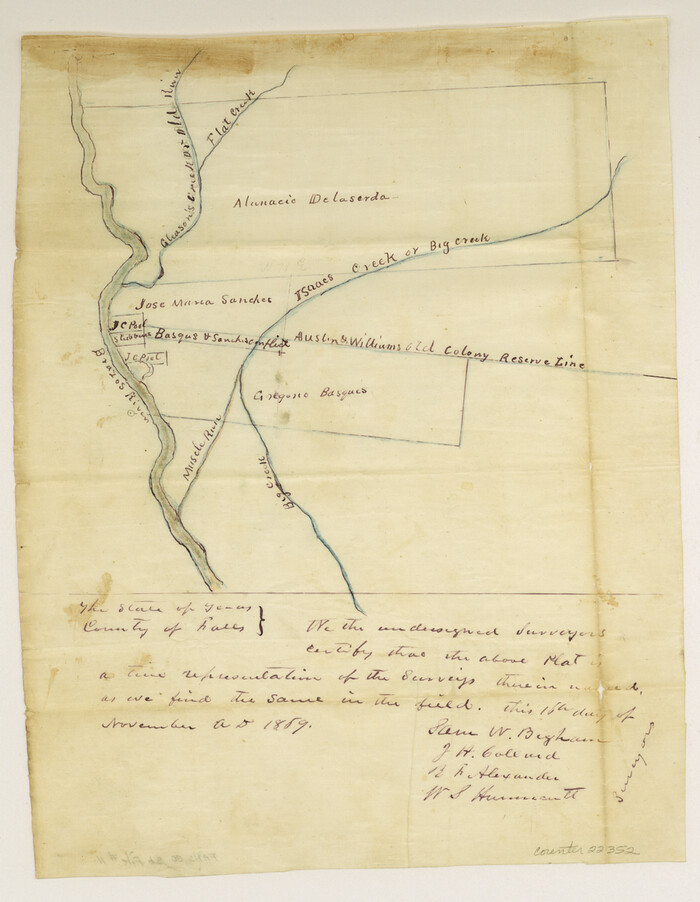 Gleason's Creek or Old River
Flat Creek
Atanacio Delaserda
Isaacs Creek or Big creek
Jose Maria Sanchez
J C Pool
Basqus & Sanchez conflict
Austin & Williams Old Colony Reserve Line
J C Pool
Brazos River
Gregorio Basques
Muscle River
Big Creek
The State of Texas }
County of Falls }
We the undersigned Surveyors
certify that the above Plat is
a true representation of the Surveys therein named,
as we find the same in the field. This 16th day of
November A D 1889.
Sam W. Bigham
J H. Coleard
W S Hunnicutt
Surveyors
counter 22352